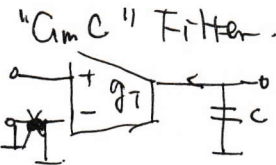 "Gm C" Filter.
+
- gT
C